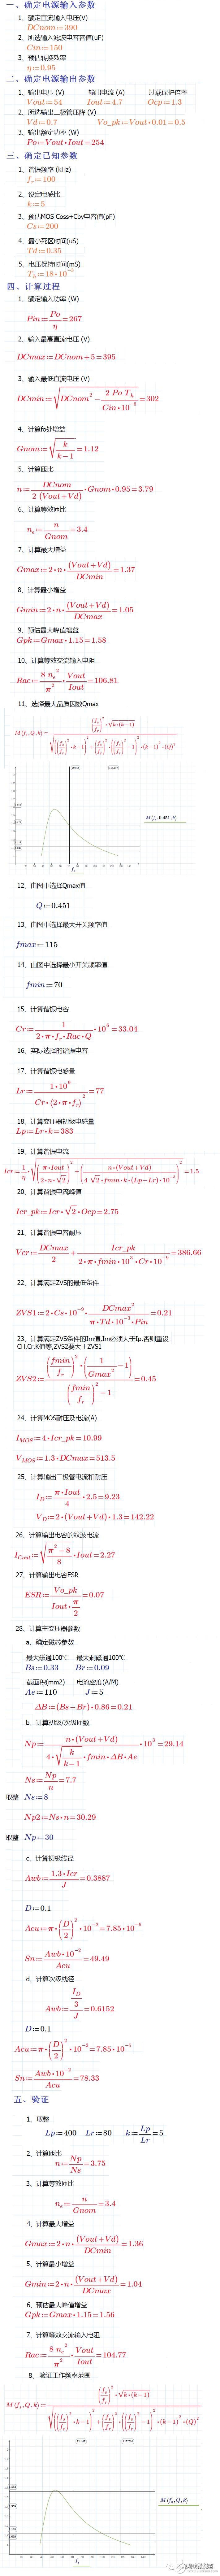 一、确定电源输入参数
1、额定直流输入电压(V)
DCnom:=390
2、所选输入滤波电容容值(uF)
Cin:=150
3、预估转换效率
η:=0.95
二、确定电源输出参数
1、输出电压 (V) 输出电流 (A) 过载保护倍率
Vout:=54 Iout:=4.7 Ocp:=1.3
2、所选输出二极管压降 (V)
Vd:=0.7 Vo_pk:=Vout•0.01=0.5
3、输出额定功率 (W)
Po:=Vout•Iout=254
三、确定已知参数
1、谐振频率 (kHz)
fr:=100
2、设定电感比
k:=5
3、预估MOS Coss+Cby电容值(pF)
Cs:=200
4、最小死区时间(uS)
Td:=0.35
5、电压保持时间(mS)
Th:=18•10^-3
四、计算过程
1、额定输入功率 (W)
Pin:=Po/η=267
2、输入最高直流电压 (V)
DCmax:=DCnom+5=395
3、输入最低直流电压 (V)
DCmin:=√(DCnom^2-(2 Po Th)/(Cin•10^-6))=302
4、计算fo处增益
Gnom:=√(k/(k-1))=1.12
5、计算匝比
n:=DCnom/(2 (Vout+Vd))•Gnom•0.95=3.79
6、计算等效匝比
ne:=n/Gnom=3.4
7、计算最大增益
Gmax:=2•n•(Vout+Vd)/DCmin=1.37
8、计算最小增益
Gmin:=2•n•(Vout+Vd)/DCmax=1.05
9、预估最大峰值增益
Gpk:=Gmax•1.15=1.58
10、计算等效交流输入电阻
Rac:=(8 ne^2)/π^2•Vout/Iout=106.81
11、选择最大品质因数Qmax
12、由图中选择Qmax值
Q:=0.451
13、由图中选择最大开关频率值
fmax:=115
14、由图中选择最小开关频率值
fmin:=70
15、计算谐振电容
Cr:=1/(2•π•fr•Rac•Q)•10^6=33.04
16、实际选择的谐振电容
17、计算谐振电感量
Lr:=(1•10^9)/(Cr•(2•π•fr)^2)=77
18、计算变压器初级电感量
Lp:=Lr•k=383
19、计算谐振电流
20、计算谐振电流峰值
Icr_pk:=Icr•√2•Ocp=2.75
21、计算谐振电容耐压
Vcr:=DCmax/2+Icr_pk/(2•π•fmin•10^3•Cr•10^-9)=386.66
22、计算满足ZVS的最低条件
ZVS1:=2•Cs•10^-9•DCmax^2/(π•Td•10^-3•Pin)=0.21
23、计算满足ZVS条件的Im值,Im必须大于Ip,否则重设
CH,Gr,K值等,ZVS2要大于ZVS1
ZVS2:=((fmin/fr)^2•(1/Gmax^2-1))/((fmin/fr)^2-1)=0.45
24、计算MOS耐压及电流(A)
IMOS:=4•Icr_pk=10.99
VMOS:=1.3•DCmax=513.5
25、计算输出二极管电流和耐压
ID:=(π•Iout)/4•2.5=9.23
VD:=2•(Vout+Vd)•1.3=142.22
26、计算输出电容的纹波电流
ICout:=√((π^2-8)/8)•Iout=2.27
27、计算输出电容ESR
ESR:=Vo_pk/(Iout•π/2)=0.07
28、计算主变压器参数
a、确定磁芯参数
最大磁通100℃ 最大剩磁通100℃
Bs:=0.33 Br:=0.09
截面积(mm2) 电流密度(A/M)
Ae:=110 J:=5
ΔB:=(Bs-Br)•0.86=0.21
b、计算初级/次级匝数
Np:=n•(Vout+Vd)/(4•√(k/(k-1))•fmin•ΔB•Ae)•10^3=29.14
Ns:=Np/n=7.7
取整 Ns:=8
Np2:=Ns•n=30.29
取整 Np:=30
c、计算初级线径
Awb:=(1.3•Icr)/J=0.3887
D:=0.1
Acu:=π•(D/2)^2•10^-2=7.85•10^-5
Sn:=(Awb•10^-2)/Acu=49.49
d、计算次级线径
Awb:=(ID/3)/J=0.6152
D:=0.1
Acu:=π•(D/2)^2•10^-2=7.85•10^-5
Sn:=(Awb•10^-2)/Acu=78.33
五、验证
1、取整
Lp:=400 Lr:=80 k:=Lp/Lr=5
2、计算匝比
n:=Np/Ns=3.75
3、计算等效匝比
ne:=n/Gnom=3.4
4、计算最大增益
Gmax:=2•n•(Vout+Vd)/DCmin=1.36
5、计算最小增益
Gmin:=2•n•(Vout+Vd)/DCmax=1.04
6、预估最大峰值增益
Gpk:=Gmax•1.15=1.56
7、计算等效交流输入电阻
Rac:=(8 ne^2)/π^2•Vout/Iout=104.77
8、验证工作频率范围